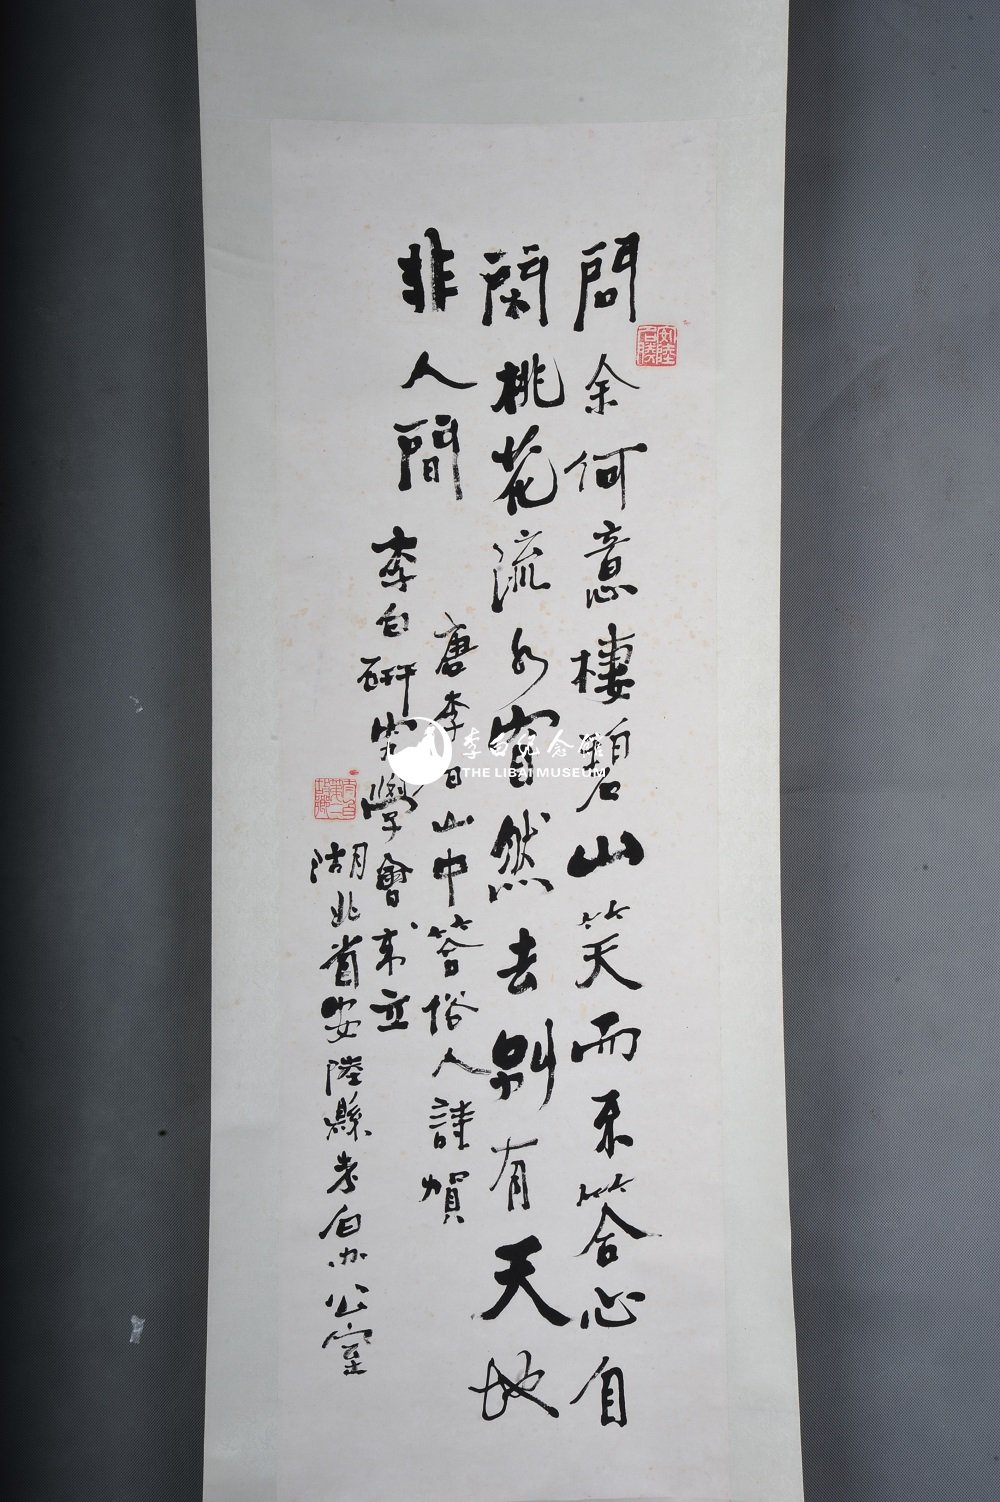 問余何意棲碧山笑而不答心自
閑桃花流水窅然去別有天地
非人間
唐李白山中答俗人詩賀
李白研究學會成立
湖北省安陸縣李白办公室
安陸名勝
李白紀念館
THE LIBAI MUSEUM